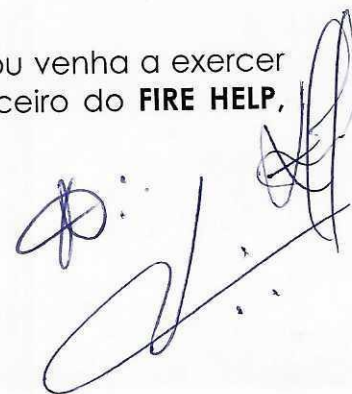 ou venha a exercer
ceiro do FIRE HELP,